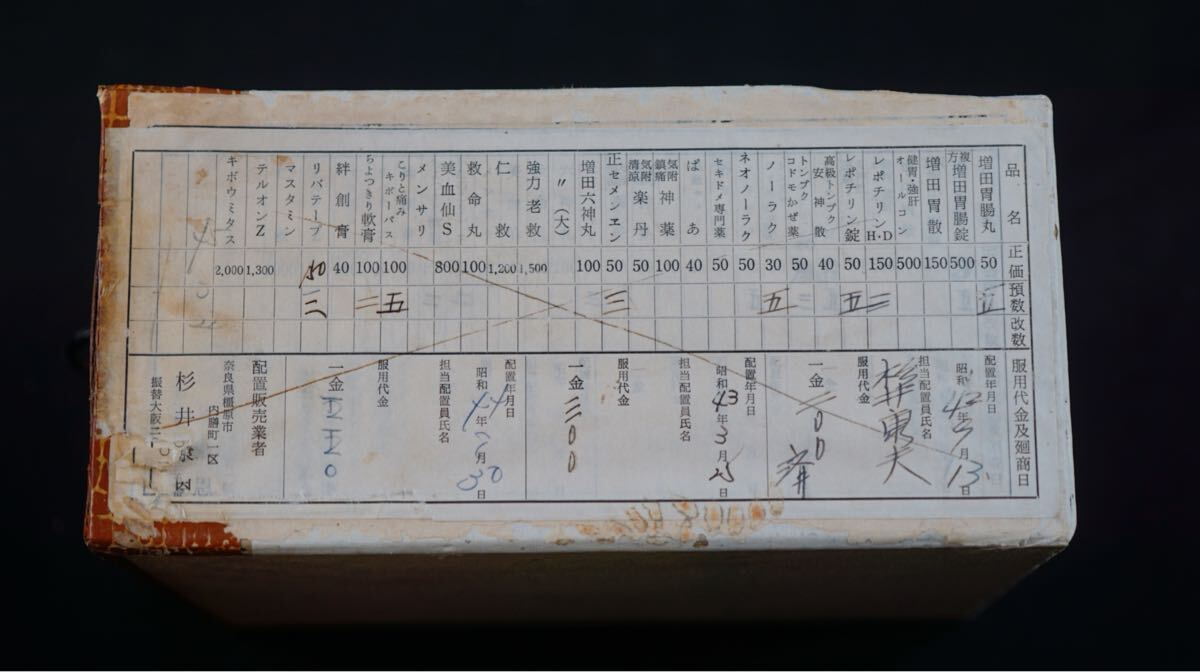 品名
正価
預数
改数
増田胃腸丸 50 五
複方増田胃腸錠 500
増田胃散 150
健胃・強肝オールコン 500
レポチリンH・D 150 二
レポチリン錠 50 五
高級トンプク安神散 40
トンプクコドモかぜ薬 50
ノーラク 30 五
ネオノーラク 50
セキドメ専門薬 50
ばあ 40
気附鎮痛神薬 100
気附清涼楽丹 50
正セメンエン 50 三
増田六神丸 100
〃(大)
強力老救 1,500
仁救 1,200
救命丸 100
美血仙S 800
メンサリ
こりと痛みキボーパス 100 五
ちよつきり軟膏 100 二
絆創膏 40
リバテープ 50 三
マスタミン
テルオンZ 1,300
キボウミタス 2,000
服用代金及廻商日
配置年月日
昭和42年7月13日
担当配置員氏名
服用代金
一金二00
配置年月日
昭和43年3月25日
担当配置員氏名
服用代金
一金三00
配置年月日
昭和44年6月30日
担当配置員氏名
服用代金
一金五五0
配置販売業者
奈良県橿原市
内膳町一区
杉井
振替大阪